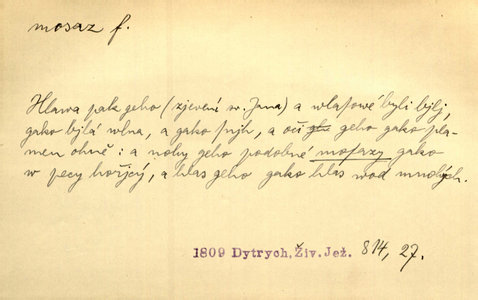 mosaz f.
Hlawa pak geho (zjevení sv. Jana) a wlasowé byli bjlj,
gako bjlá wlna, a gako snjh, a oči geho gako pla-
men ohně: a nohy geho podobné mosazy gako
w pecy hořjcý, a hlas geho gako hlas wod mnohých.
1809 Dytrych, Živ. Jež. 814, 27.